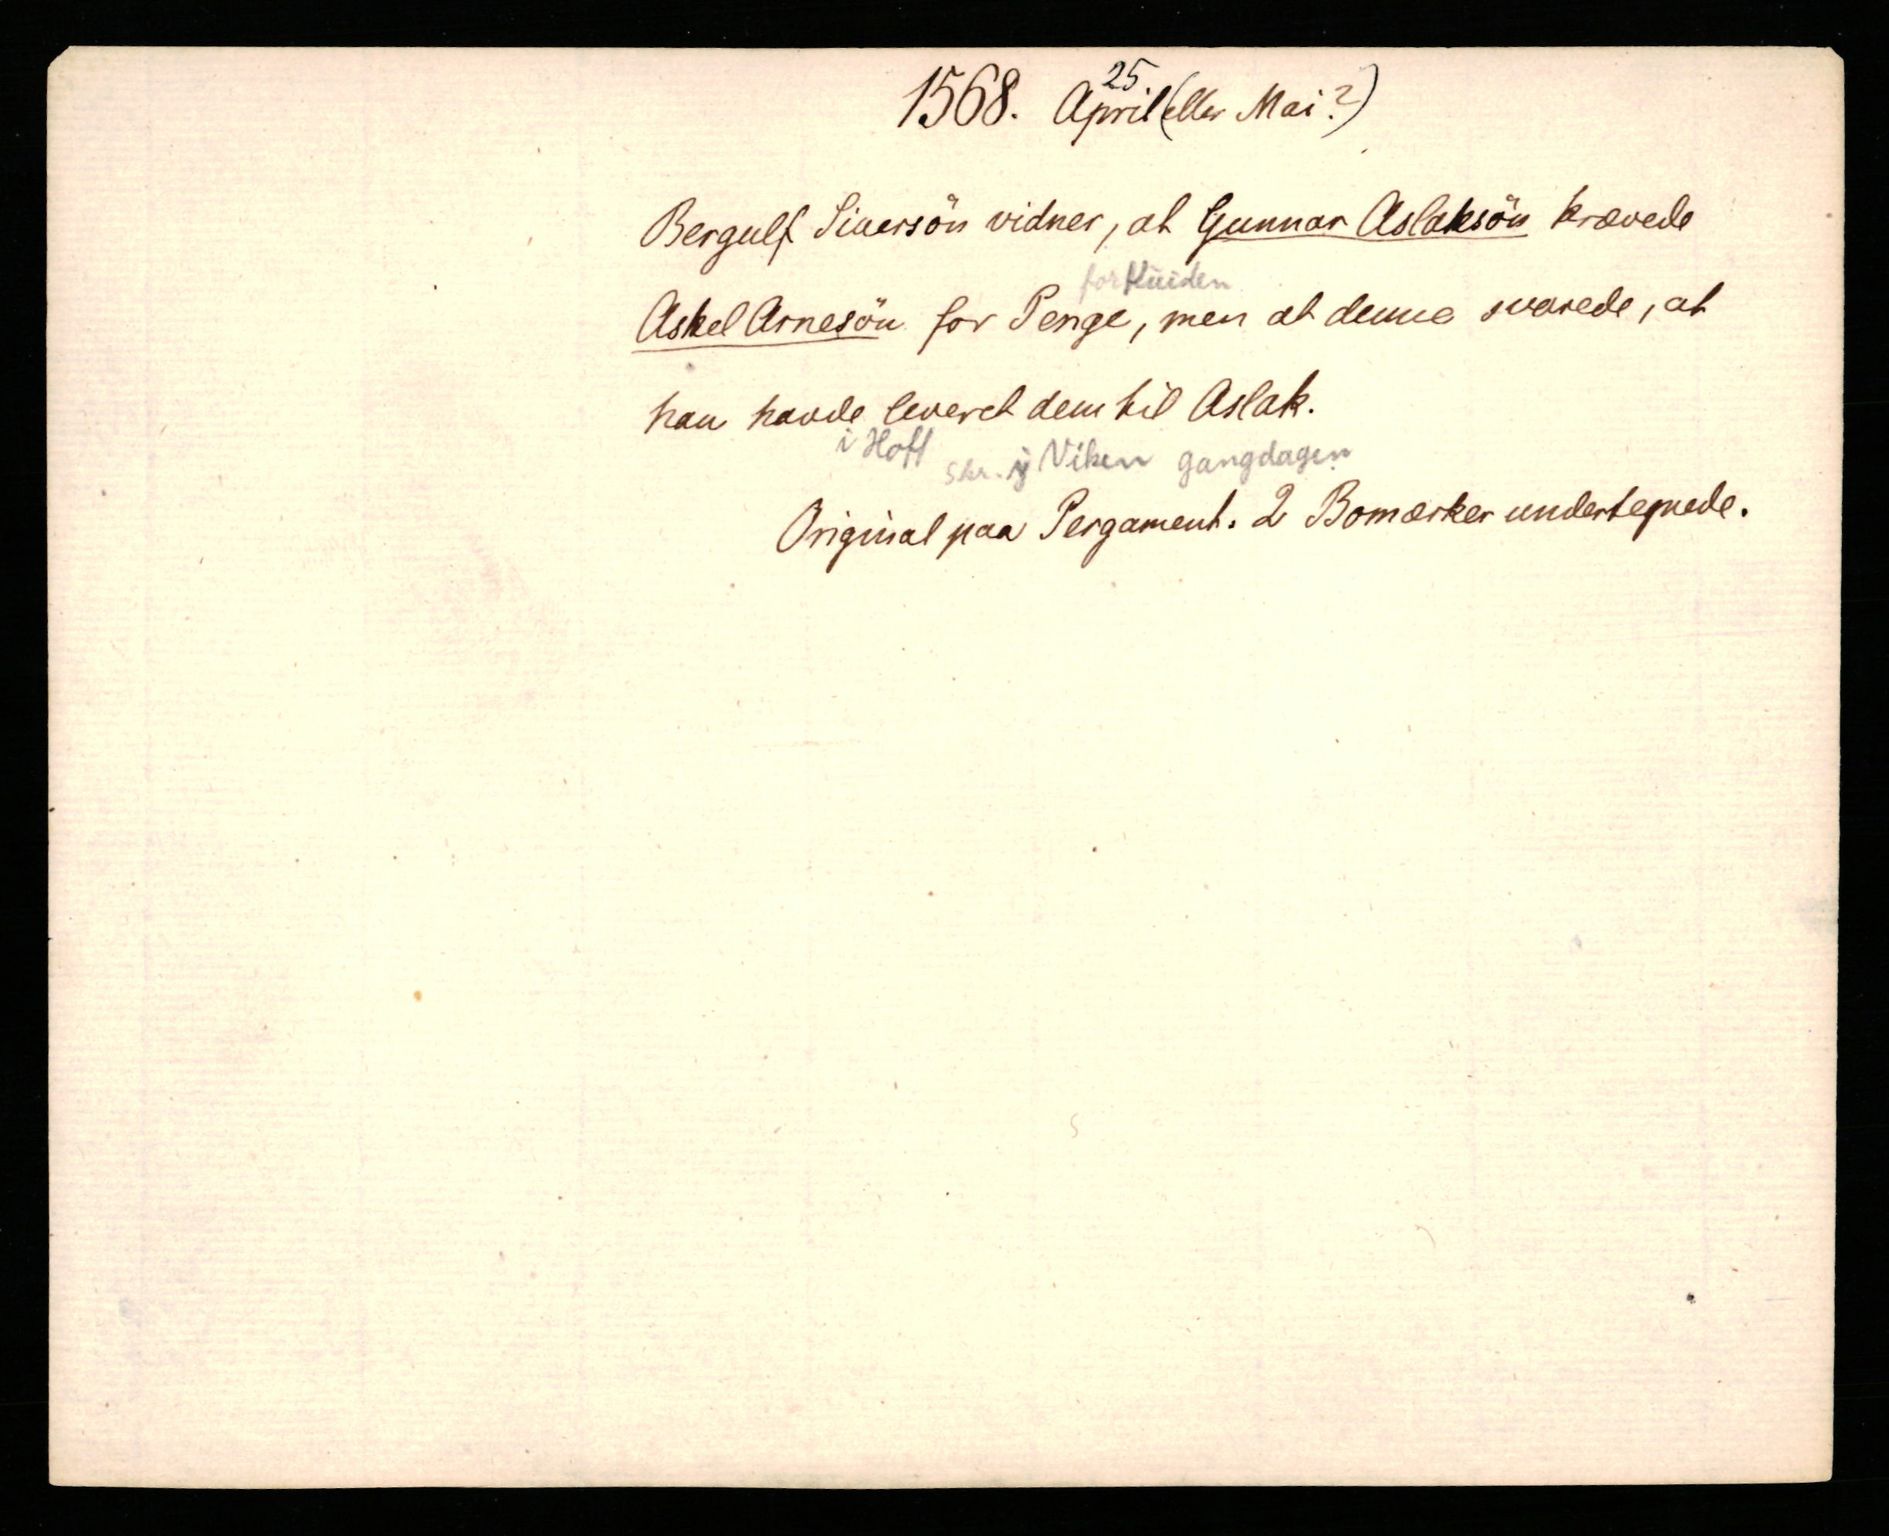 25
1568. April (eller Mai?)
Bergulf Siuersön vidner, at Gunnar Aslaksön krævede
for Kuiden
Askel Arnesön for Penge, men at denne svarede, at
han havde leveret dem til Aslak.
i Hoff skr. i Viken gangdagen
Original paa Pergament. 2 Bomærker undertegnede.